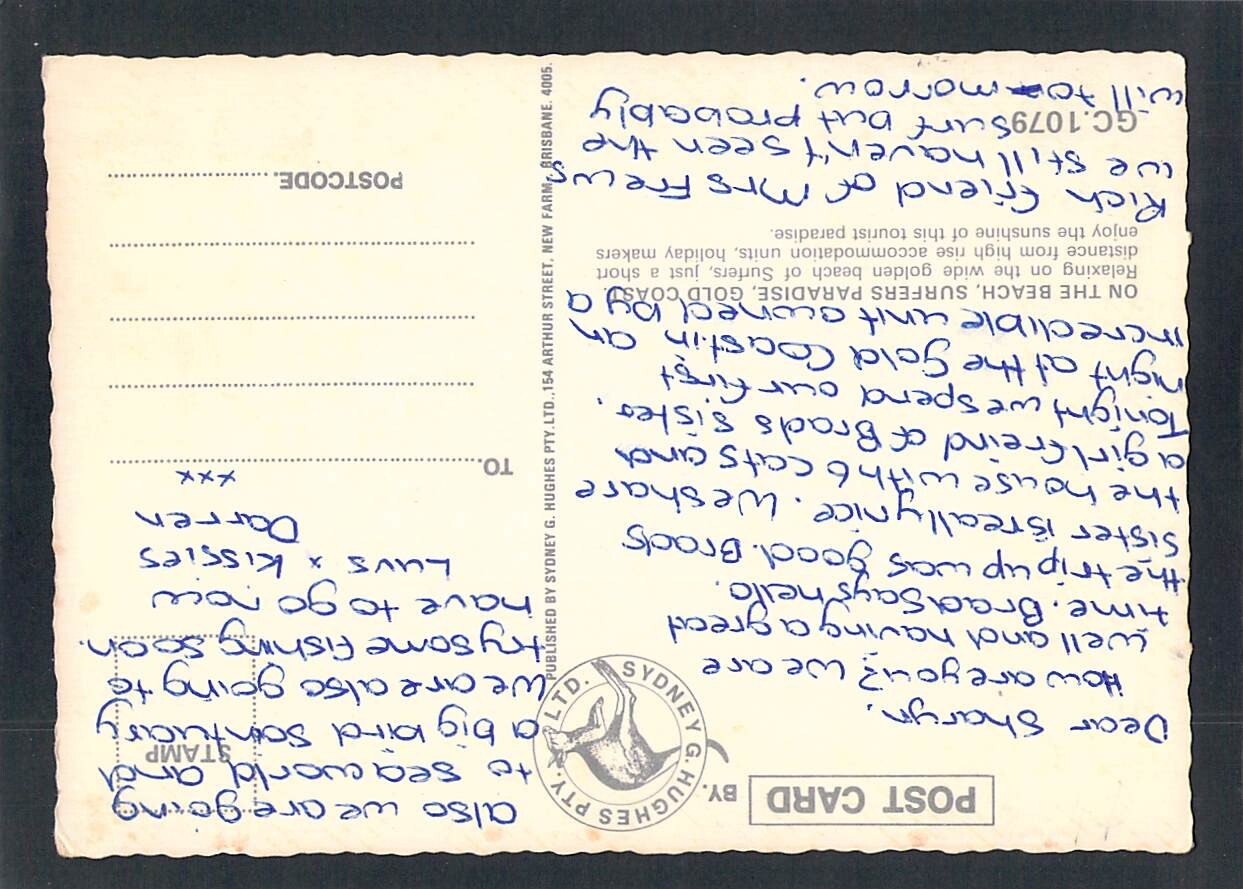 POST CARD
BY.
SYDNEY G. HUGHES PTY. LTD.
Dear Sharyn,
How are you? We are
well and having a great
time. Brad says hello.
the trip up was good. Brads
sister is really nice. We share
the house with 6 cats and
a girlfreind of Brads sister.
Tonight we spend our first
night at the gold Coast in an
incredible unit owned by a
ON THE BEACH, SURFERS PARADISE, GOLD COAST.
Relaxing on the wide golden beach of Surfers, just a short
distance from high rise accommodation units, holiday makers
enjoy the sunshine of this tourist paradise.
Rich friend of Mrs Frews
we still haven't seen the
GC.1079
surf but probably
will to morrow.
PUBLISHED BY SYDNEY G. HUGHES PTY. LTD., 154 ARTHUR STREET, NEW FARM, BRISBANE. 4005.
also we are going
to seaworld and
STAMP
a big bird santuary
We are also going to
try some fishing soon.
have to go now
Luvs x Kissies
Darren
xxx
TO
POSTCODE